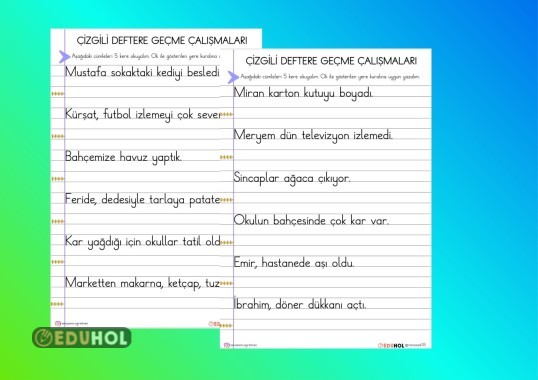 ÇİZGİLİ DEFTERE GEÇME ÇALIŞMALARI
Aşağıdaki cümleleri 5 kere okuyalım. Ok ile gösterilen yere kuralına
Mustafa sokaktaki kediyi besledi
Kürşat, futbol izlemeyi çok sever
Bahçemize havuz yaptık.
Feride, dedesiyle tarlaya patate
Kar yağdığı için okullar tatil old
Marketten makarna, ketçap, tuz
ÇİZGİLİ DEFTERE GEÇME ÇALIŞMALARI
Aşağıdaki cümleleri 5 kere okuyalım. Ok ile gösterilen yere kuralına uygun yazalım.
Miran karton kutuyu boyadı.
Meryem dün televizyon izlemedi.
Sincaplar ağaca çıkıyor.
Okulun bahçesinde çok kar var.
Emir, hastanede aşı oldu.
İbrahim, döner dükkanı açtı.
EDUHOL
EDUHOL